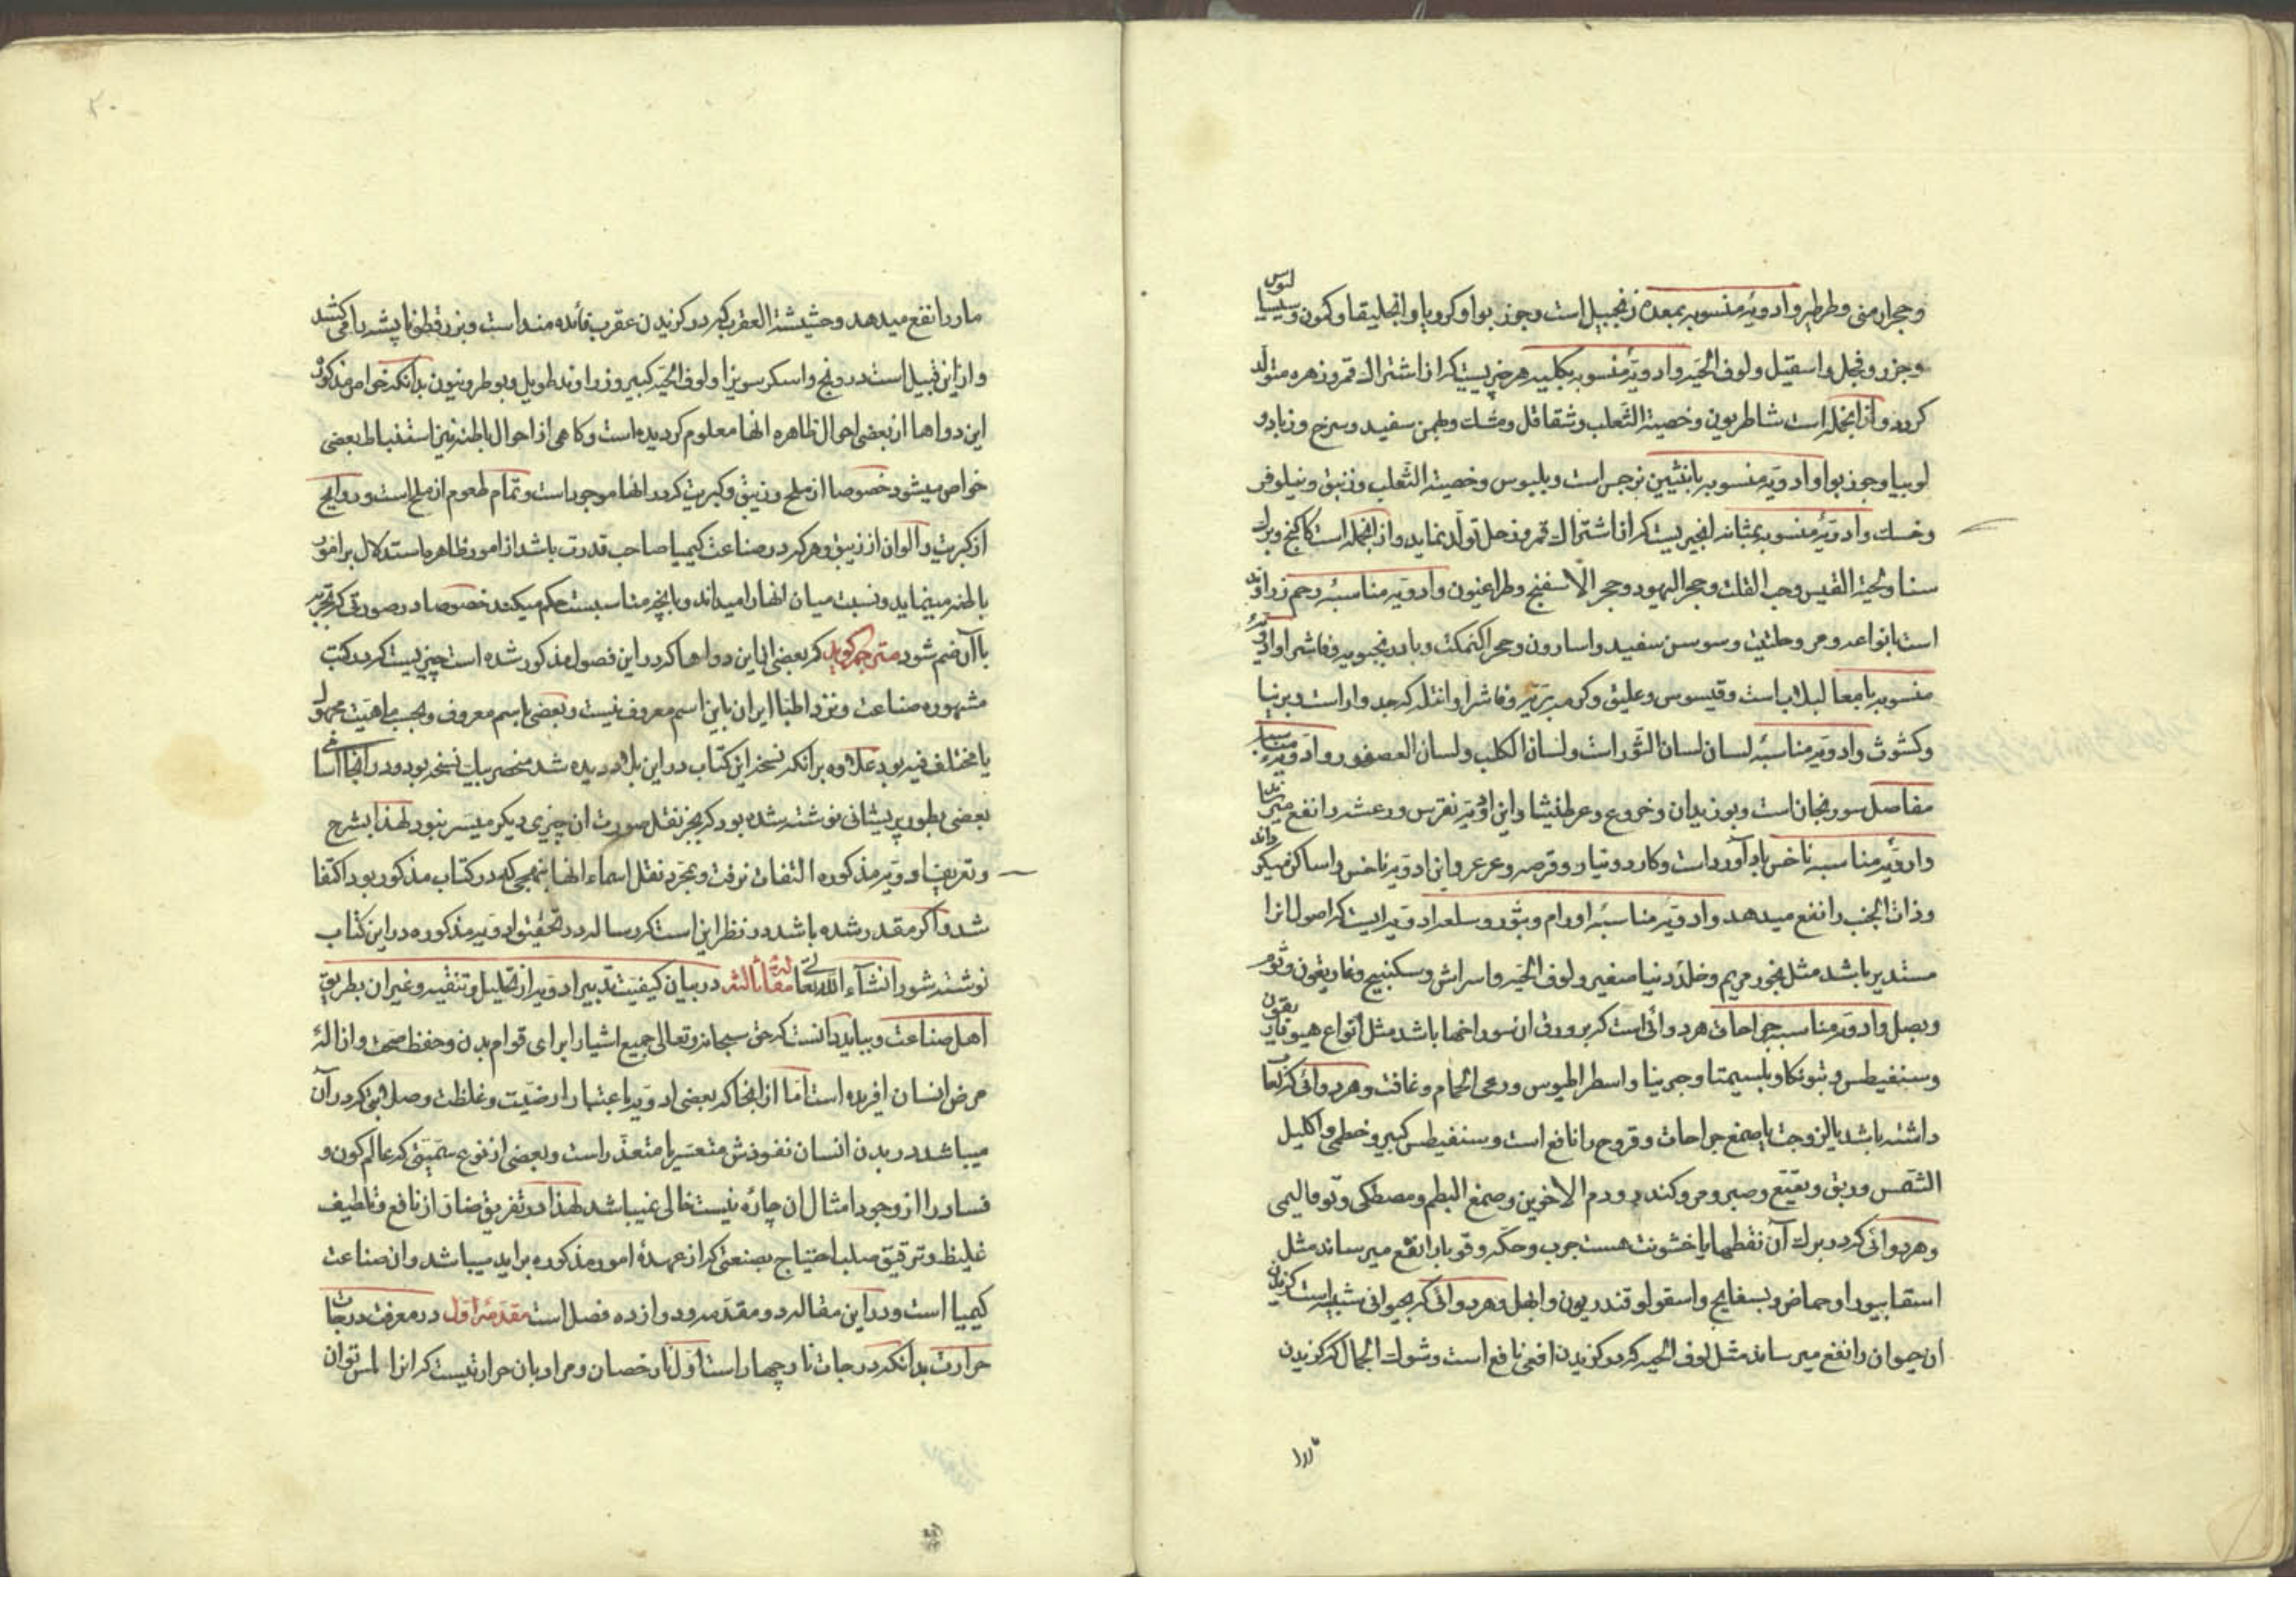 وحجر ارمنی وطرطیر وادویهٔ منسوبه بمعده زنجبیل است وجوز بوا وکرویا وانجلیقا وکمون وسیسالیوس
وجزر وفجل واسقیل ولوف الحیه وادویهٔ منسوبه بکلیه هر چیزیست که از اشتراک قمر وزهره متولد
کردد واز انجمله است شاطریون وخصیة الثعلب وشقاقل ومشک وبهمن سفید وسرخ وزبا در
لوبیا وجوز بوا وادویه منسوبه بانثیین نرجس است وبلبوس وخصیة الثعلب وزنبق ونیلوفر
وخسک وادویهٔ منسوبه بمثانه انچیزیست که از اشتراک قمر وزحل تولد نماید واز انجمله است کاکنج وبرک
سنا ولحیة التیس وحب القلت وحجر الیهود وحجر الاسفنج وطراغیون وادویه مناسبهٔ رحم زراوند
است بانواعه ومر وحلتیت وسوسن سفید واسارون وحجر اکتمکت وبادرنجبویه وفاشرا وادویهٔ
منسوبه بامعا لبلاب است وقیسوس وعلیق وکرمه بریه وفاشرا وانتله که جدوار است وبرنیا
وکشوث وادویه مناسبهٔ لسان لسان الثور است ولسان الکلب ولسان العصفور وادویه مناسبهٔ
مفاصل سورنجان است وبوزیدان وخروع وعرطنیثا واین ادویه نقرس ورعشه را نفع میرساند
وادویهٔ مناسبه ناخس باداورد است وکاردوس وقرصعنه وعرعر واین ادویه ناخس را ساکن میکرداند
وذات الجنب را نفع میدهد وادویه مناسبهٔ اورام وبثور وسلعه ادویه ایست که اصول انرا
مستدیر باشد مثل بخور مریم وخلدونیا صغیر ولوف الحیه واسراش وسکبینج وغاریقون وثوم
وبصل وادویه مناسبه جراحات هر دوائی است که بر ورق ان سوراخها باشد مثل انواع هیوفاریقون
وسنفیطس وبتونکا وبلسیمتا وجرینا واسطراطیوس ورعی الحمام وغافت وهر دوائی که لعاب
داشته باشد یا لزوجت یا صمغ جراحات وقروح را نافع است وسنفیطس کبیر وخطمی واکلیل
الشمس ودبق وبقیع وصبر ومر وکندر ودم الاخوین وصمغ البطم ومصطکی وتوفالیمی
وهر دوائی که در برک آن نقطها یا خشونت هست جرب وحکه وقوبا را نفع میرساند مثل
اسقابیوراو حماض وبسفایج واسقولوقندریون وابهل وهر دوائی که بحیوانی شبیه است کزیدن
ان حیوان را نفع میرساند مثل لوف الحیه که در کزیدن افعی نافع است وشوک الجمال که کزیدن
مار را نفع میدهد وحشیشة العقرب که در کزیدن عقرب فائده مند است وبزر قطونا پشه را میکشد
واز این قبیل است درونج واسکرسونیرا ولوف الحیه کبیر وزراوند طویل وبوطریون بدانکه خواص مذکورهٔ
این دواها از بعضی احوال ظاهره انها معلوم کردیده است وکاهی از احوال باطنه نیز استنباط بعضی
خواص میشود خصوصا از ملح وزیبق وکبریت که در انها موجود است وتمام طعوم از ملح است وروایح
از کبریت والوان از زیبق وهر که در صناعت کیمیا صاحب قدرت باشد از امور ظاهره استدلال بر امور
باطنه مینماید ونسبت میان انها را میداند وبانچه مناسبست حکم میکند خصوصا در صورتی که تجربه
باآن ضم شود مترجم کوید که بعضی از این دواها که در این فصول مذکور شده است چیزیست که در کتب
مشهوره صناعت ونزد اطبا ایران باین اسم معروف نیست وبعضی باسم معروف وبحسب ماهیت مجهول
یا مختلف فیه بود علاوه بر انکه نسخه این کتاب در این بلاد دیده شد منحصر بیک نسخه بود ودر انجا اسامی
بعضی بطور پریشانی نوشته شده بود که بجز نقل صورت ان چیزی دیکر میسر نبود لهذا بشرح
وتعریف ادویه مذکوره التفات نرفت وبمجرد نقل اسماء انها بنهجی که در کتاب مذکور بود اکتفا
شد واکر مقدر شده باشد در نظر این است که رساله در تحقیق ادویه مذکوره در این کتاب
نوشته شود انشآء الله تعالی مقالهٔ ثالثه در بیان کیفیت تدبیر ادویه از تحلیل وتنقیه وغیر ان بطریق
اهل صناعت وبباید دانست که حق سبحانه وتعالی جمیع اشیا را برای قوام بدن وحفظ صحت وازالهٔ
مرض انسان افریده است اما از انجا که بعضی ادویه باعتبار ارضیت وغلظت وصلابتی که در آن
میباشد در بدن انسان نفوذش متعسر یا متعذر است وبعضی از نوع سمیتی که عالم کون و
فساد را از وجود امثال ان چاره نیست خالی نمیباشد لهذا در تفریق ضار از نافع وتلطیف
غلیظ وترقیق صلب احتیاج بصنعتی که از عهدهٔ امور مذکوره براید میباشد وان صناعت
کیمیا است ودر این مقاله دو مقدمه ودوازده فصل است مقدمهٔ اول در معرفت درجات
حرارت بدانکه درجات نار چهار است اول نار حضان ومراد بان حرارتیست که انرا لمس توان